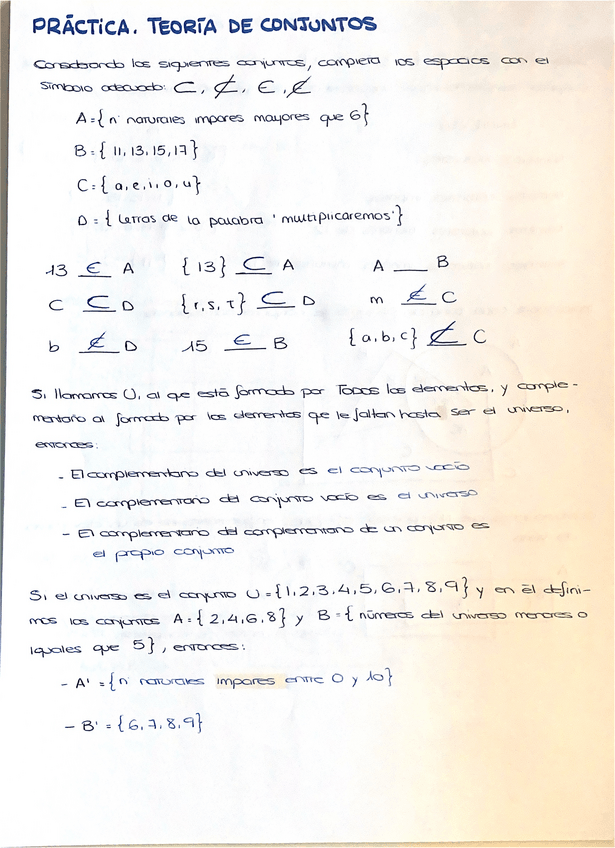 PRÁCTICA. TEORÍA DE CONJUNTOS
Considerando los siguientes conjuntos, completa los espacios con el
símbolo adecuado: ⊂, ⊄, ∈, ∉
A={nº naturales impares mayores que 6}
B={11,13,15,17}
C={a,e,i,o,u}
D = {Letras de la palabra 'multiplicaremos'}
13 ∈ A {13} ⊂ A A ___ B
C ⊂ D {r,s,t} ⊂ D m ∉ C
b ∉ D 15 ∈ B {a,b,c} ⊄ C
Si llamamos U, al qe está formado por TODOS los elementos, y comple-
mentario al formado por los elementos qe le faltan hasta ser el universo,
entonces:
- El complementario del universo es el conjunto vacío
- El complementario del conjunto vacío es el universo
- El complementario del complementario de un conjunto es
el propio conjunto
Si el universo es el conjunto U={1,2,3,4,5,6,7,8,9} y en él defini-
mos los conjuntos A={2,4,6,8} y B={números del universo menores o
iguales que 5}, entonces:
- A' ={nº naturales impares entre 0 y 10}
- B' ={6,7,8,9}